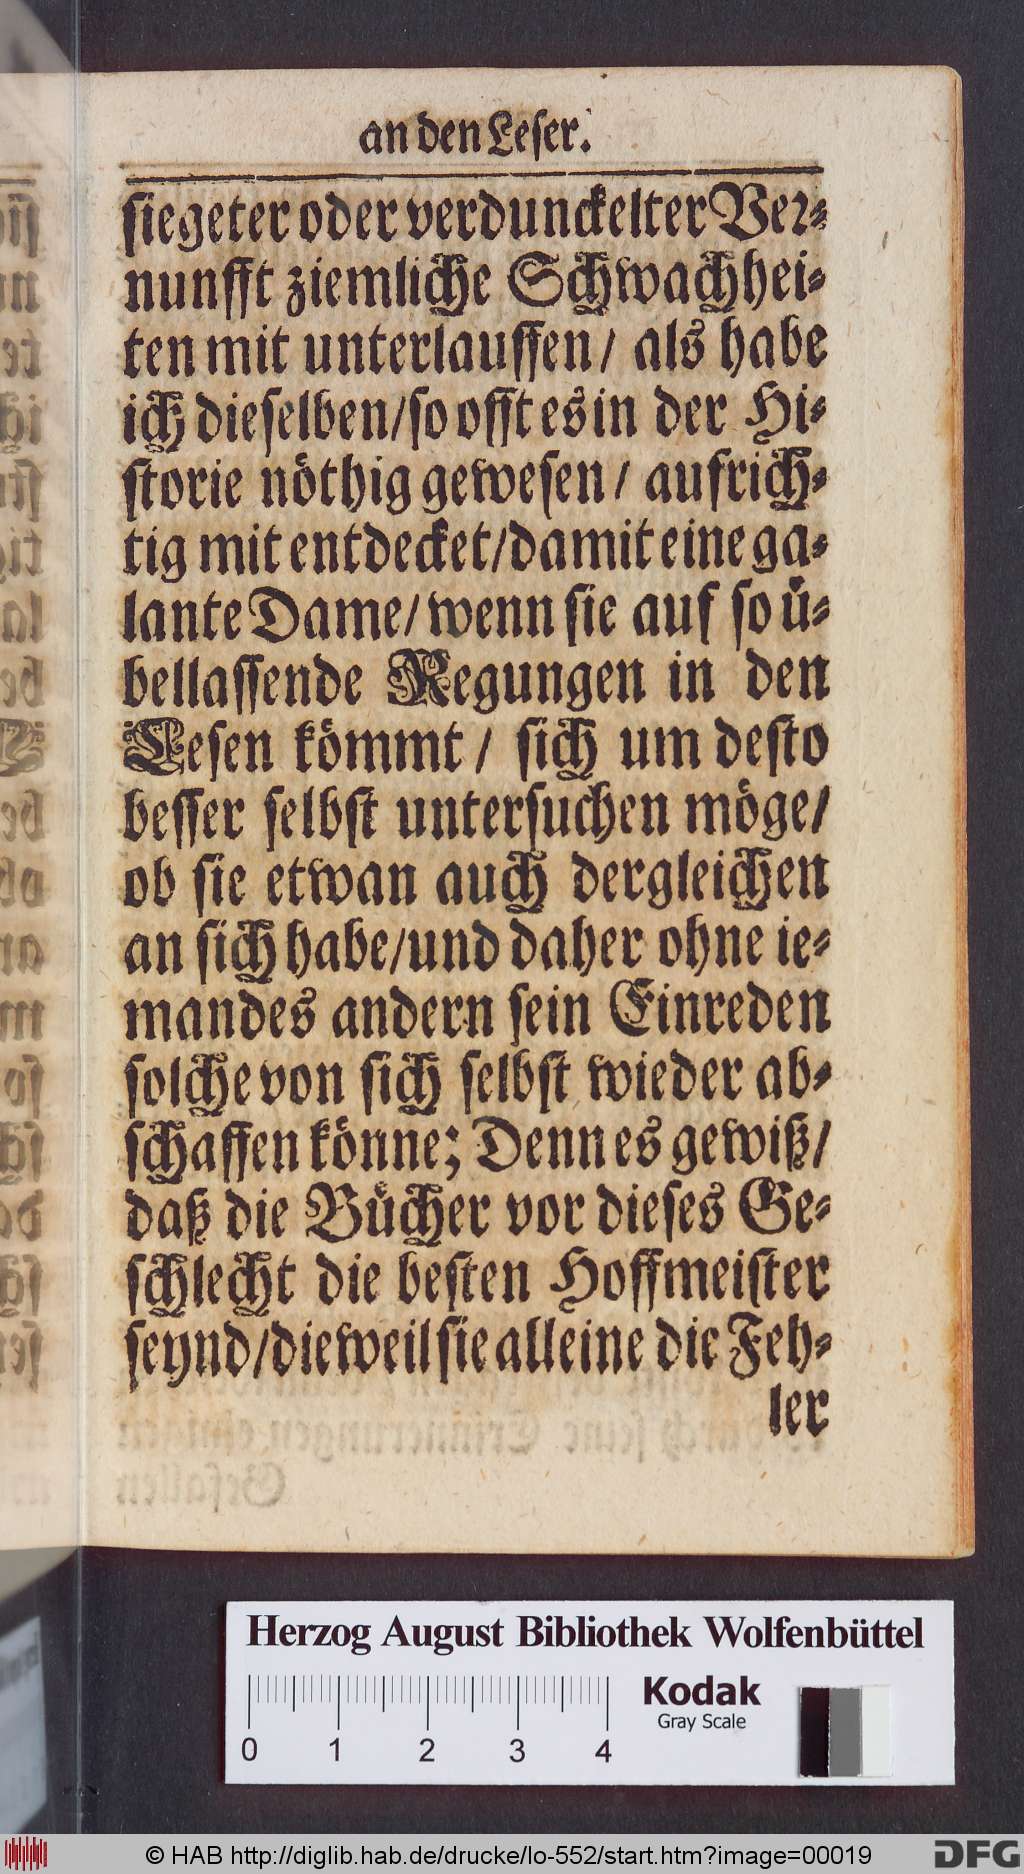 an den Leser.
siegeter oder verdunckelter Ver-
nunfft ziemliche Schwachhei-
ten mit unterlauffen/ als habe
ich dieselben/ so offt es in der Hi-
storie nöthig gewesen/ aufrich-
tig mit entdecket/ damit eine ga-
lante Dame/ wenn sie auf so ü-
bellassende Regungen in den
Lesen kömmt/ sich um desto
besser selbst untersuchen möge/
ob sie etwan auch dergleichen
an sich habe/ und daher ohne ie-
mandes andern sein Einreden
solche von sich selbst wieder ab-
schaffen könne; Denn es gewiß/
daß die Bücher vor dieses Ge-
schlecht die besten Hoffmeister
seynd/ dieweil sie alleine die Feh-
ler
Herzog August Bibliothek Wolfenbüttel
Kodak
Gray Scale
0 1 2 3 4
© HAB http://diglib.hab.de/drucke/lo-552/start.htm?image=00019
DFG